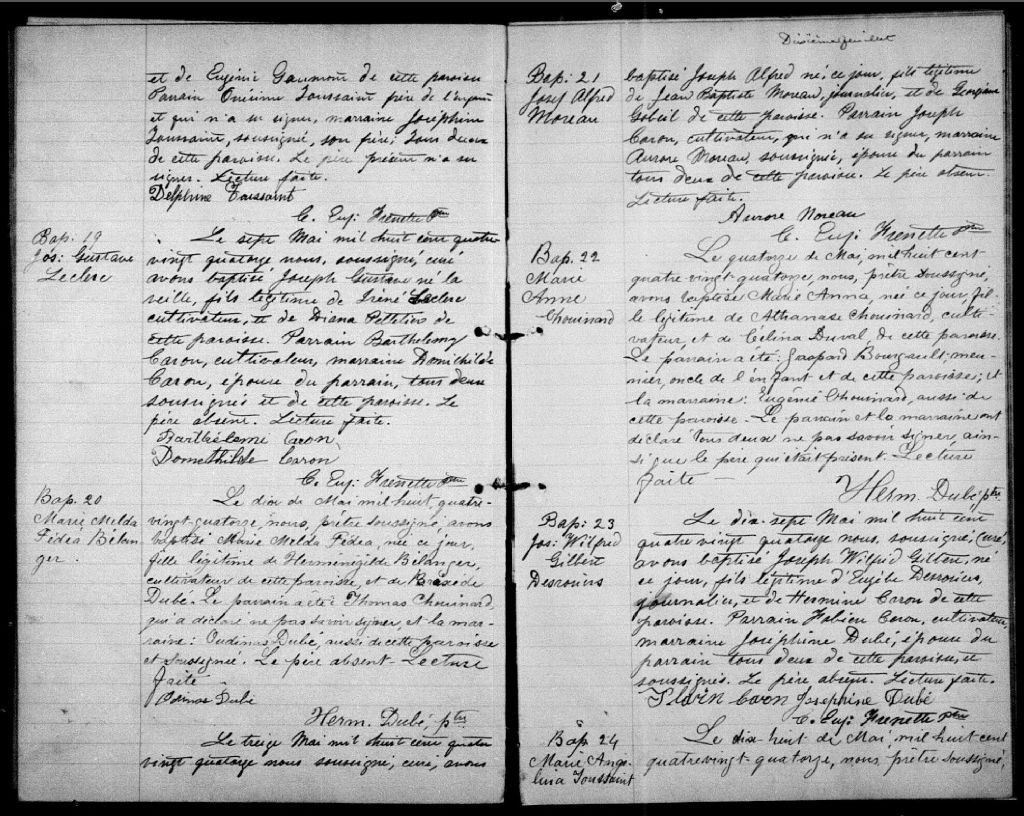 et de Eugénie Gaumont de cette paroisse
Parrain Onésime Toussaint père de l'enfant
et qui n'a su signer, marraine Joséphine
Toussaint, soussigné, son frère, tous deux
de cette paroisse. Le père présent n'a su
signer. Lecture faite.
Delphine Toussaint
C. Eug: Frenette ptre
Bap. 19
Jos: Gustave
Leclerc
Le sept Mai mil huit cent quatre
vingt quatorze nous, soussigné, curé
avons baptisé Joseph Gustave né la
veille, fils légitime de Iréné Leclerc
cultivateur, et de Diana Pelletier de
cette paroisse. Parrain Barthelemy
Caron, cultivateur, marraine Domithilde
Caron, épouse du parrain, tous deux
soussignés et de cette paroisse. Le
père absent. Lecture faite.
Barthélemi Caron
Domethilde Caron
C. Eug: Frenette ptre
Bap. 20
Marie Melda
Fidéa Bélan-
ger.
Le dix de Mai mil huit, quatre-
vingt-quatorze, nous, prêtre soussigné, avons
baptisé Marie Melda Fidea, née ce jour,
fille légitime de Herménégilde Bélanger,
cultivateur de cette paroisse, et de Praxède
Dubé. Le parrain a été: Thomas Chouinard
qui a déclaré ne pas savoir signer, et la mar-
raine: Dubé, aussi de cette paroisse
et soussignée. Le père absent. Lecture
faite
Dubé
Herm. Dubé ptre
Le treize Mai mil huit cent quatre
vingt quatorze nous soussigné, curé, avons
Dixième feuillet
Bap: 21
Josef Alfred
Moreau
baptisé Joseph Alfred né, ce jour, fils légitime
de Jean Baptiste Moreau, journalier, et de Georgiana
Gobeil de cette paroisse. Parrain Joseph
Caron, cultivateur, qui n'a su signer, marraine
Aurore Moreau, soussignée, épouse du parrain
tous deux de cette paroisse. Le père absent.
Lecture faite.
Aurore Moreau
C. Eug: Frenette ptre
Bap. 22
Marie
Anne
Chouinard
Le quatorze de Mai, mil huit cent
quatre vingt-quatorze, nous, prêtre soussigné,
avons baptisé Marie Anna, née ce jour, fil-
le légitime de Athanase Chouinard, culti-
vateur, et de Célina Duval de cette paroisse.
Le parrain a été: Gaspard Bourgault, meu-
nier, oncle de l'enfant et de cette paroisse; et
la marraine: Eugénie Chouinard, aussi de
cette paroisse. Le parrain et la marraine ont
déclaré tous deux ne pas savoir signer, ain-
si que le père qui était présent. Lecture
faite —
Herm. Dubé ptre
Bap: 23
Jos: Wilfred
Gilbert
Desrosiers
Le dix-sept Mai mil huit cent
quatre vingt quatorze nous, soussigné, curé,
avons baptisé Joseph Wilfrid Gilbert, né
ce jour, fils légitime d'Eusèbe Desrosiers,
journalier, et de Hermine Caron de cette
paroisse. Parrain Fabien Caron, cultivateur,
marraine Joséphine Dubé, épouse du
parrain tous deux de cette paroisse, et
soussignés. Le père absent. Lecture faite.
Caron Josephine Dubé
C. Eug: Frenette ptre
Bap. 24
Marie Ange-
lina Toussaint
Le dix-huit de Mai, mil huit cent
quatrevingt-quatorze, nous prêtre soussigné,